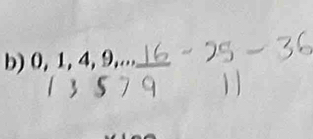 b) 0, 1, 4, 9,... 16 - 25 - 36
1 3 5 7 9 11